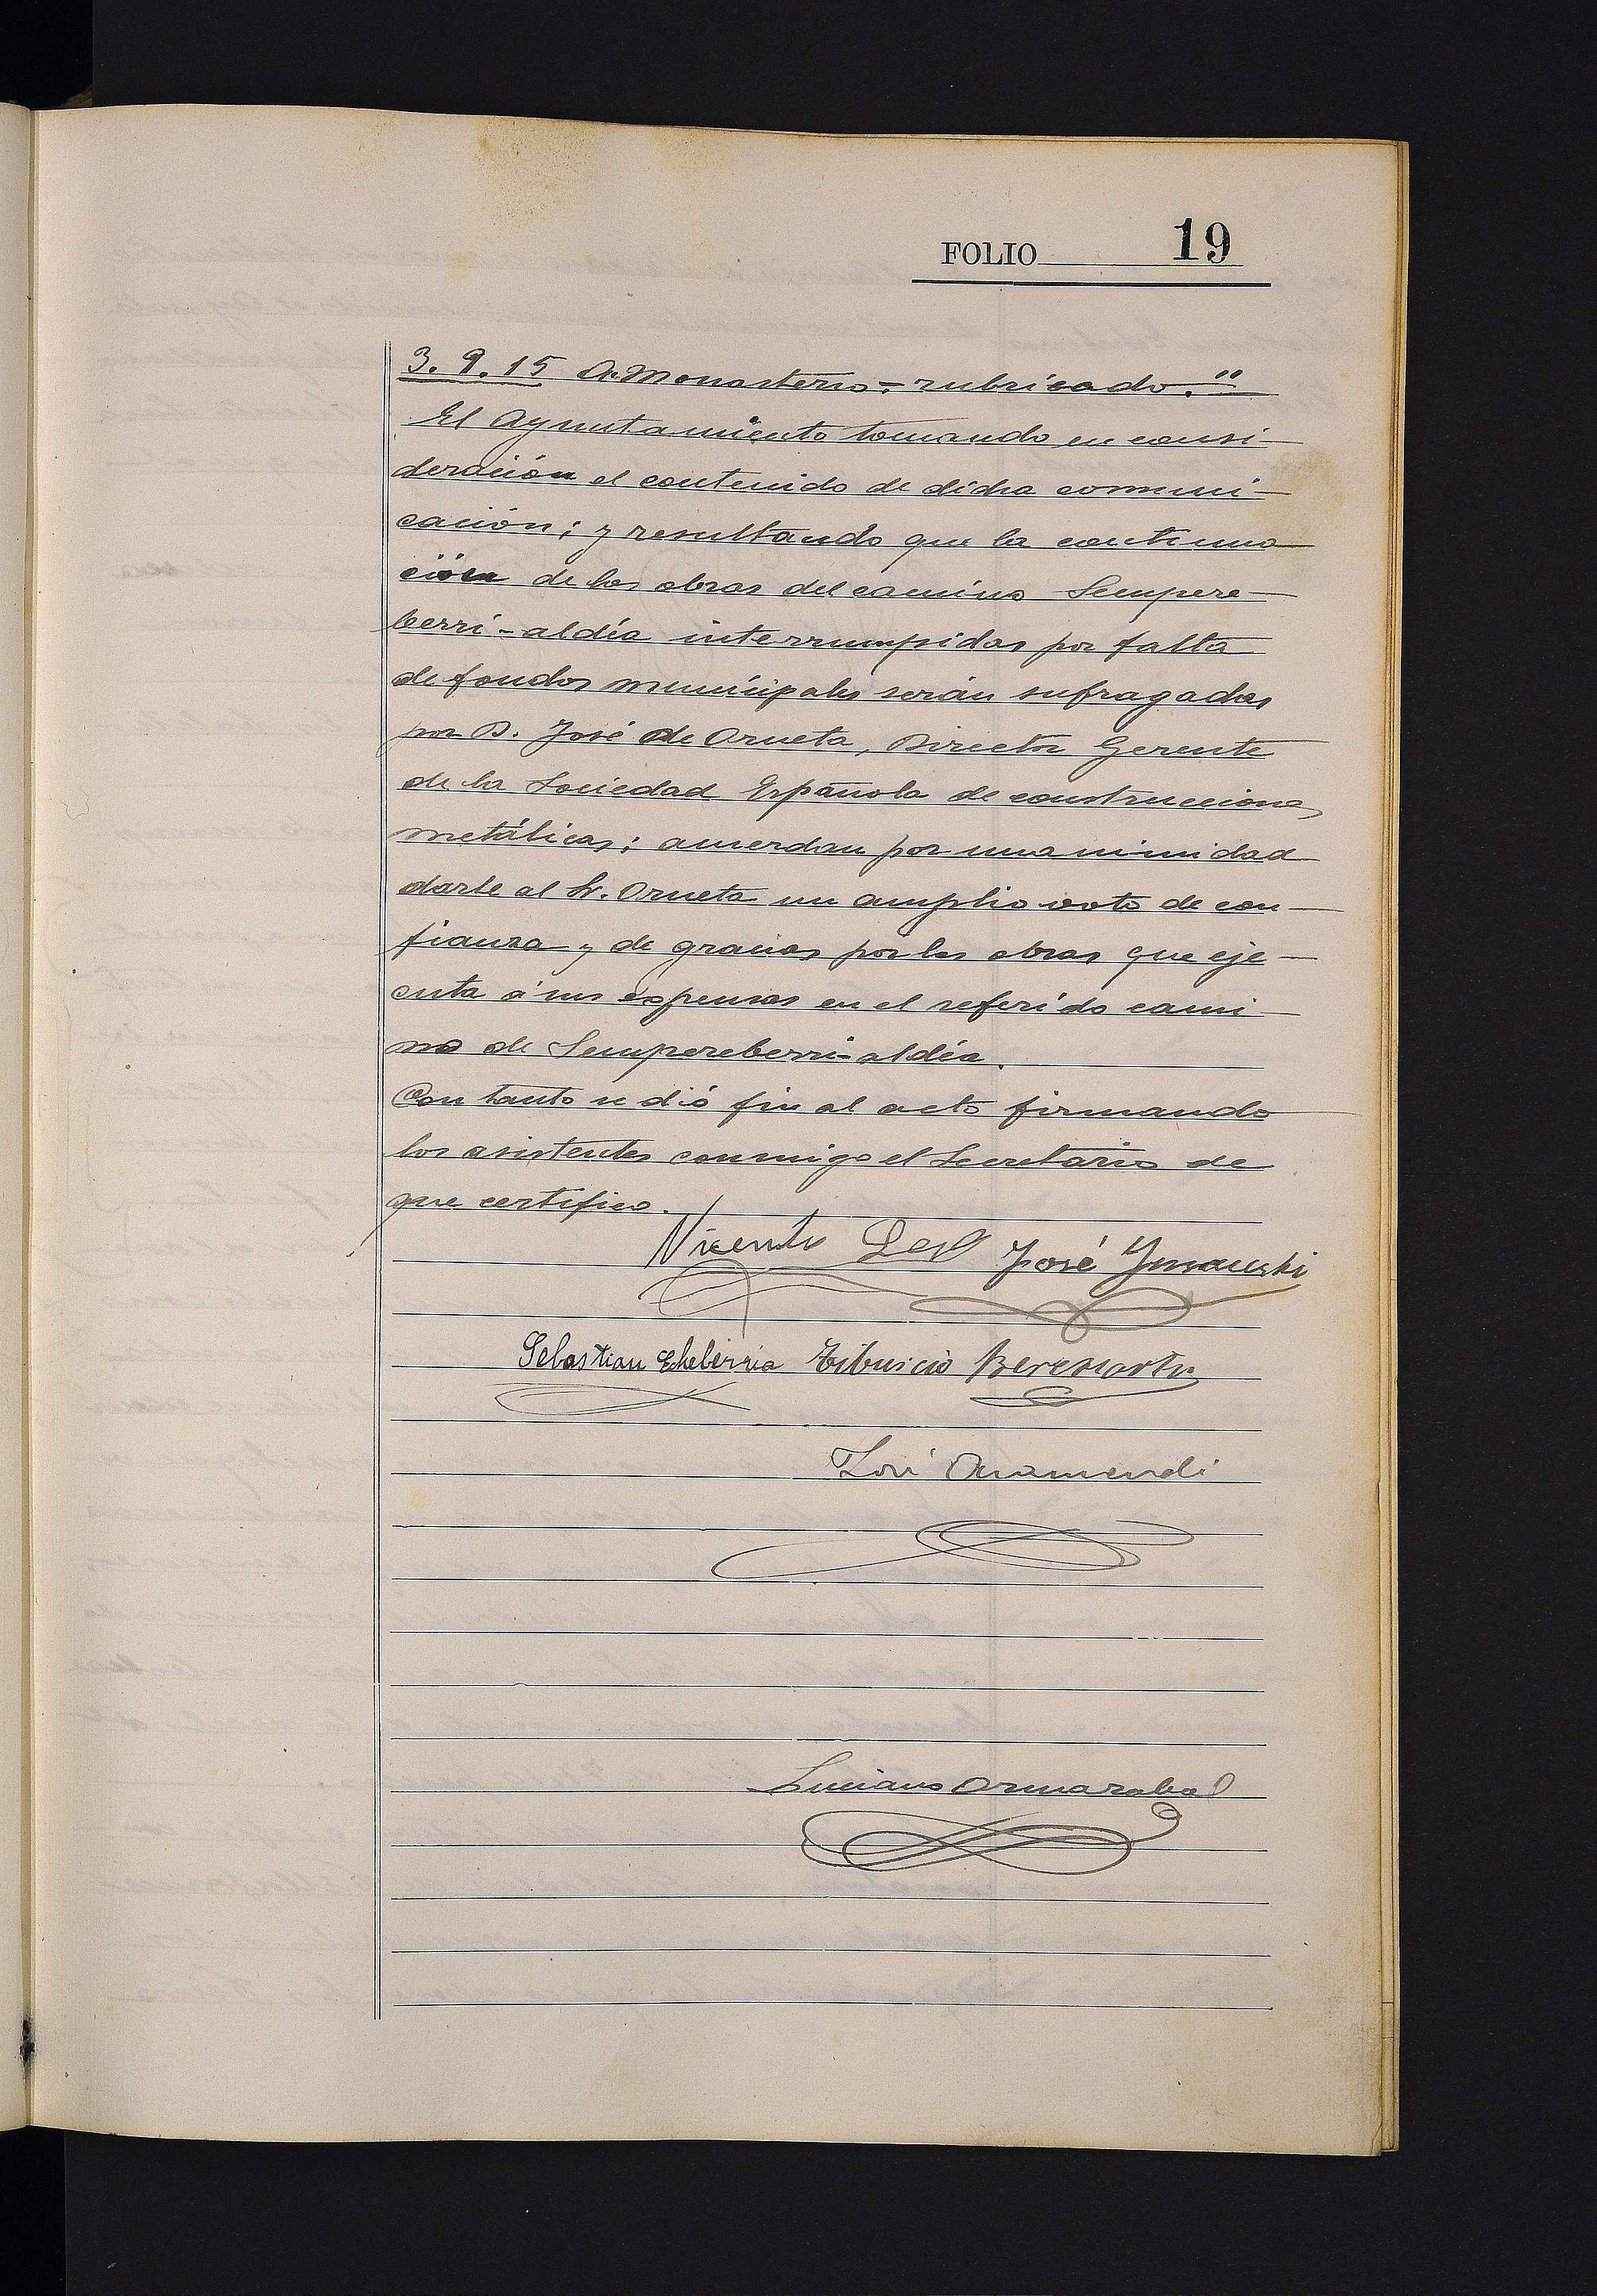 FOLIO 19
3. 9. 15 A. Monasterio = rubricado."
El Ayuntamiento tomando en consi-
deración el contenido de dicha comuni-
cación; y resultando que la continua
ción de las obras del camino Sempere-
berri-aldéa interrumpidas por falta
de fondos municipales serán sufragadas
por D. José de Orueta, Director Gerente
de la Sociedad Española de construcciones
metálicas; acuerdan por unanimidad
darle al Sr. Orueta un amplio voto de con-
fianza y de gracias por las obras que eje-
cuta á sus expensas en el referido cami
no de Sempereberri-aldéa.
Con tanto se dió fin al acto firmando
los asistentes conmigo el Secretario de
que certifico.
Vicente José
Sebastian Echeberria Tiburcio Beresiartu
José Aramendi
Luciano Ormazabal